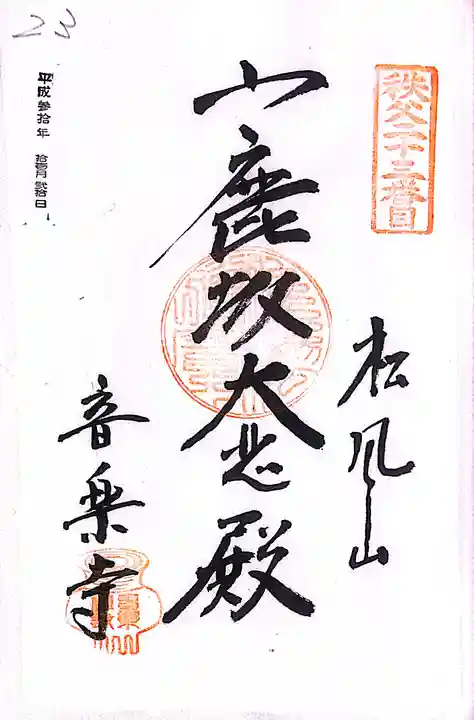 秩父二十三番目
松風山
小鹿坂大悲殿
音楽寺
平成参拾年 拾壱月 弐拾日
23